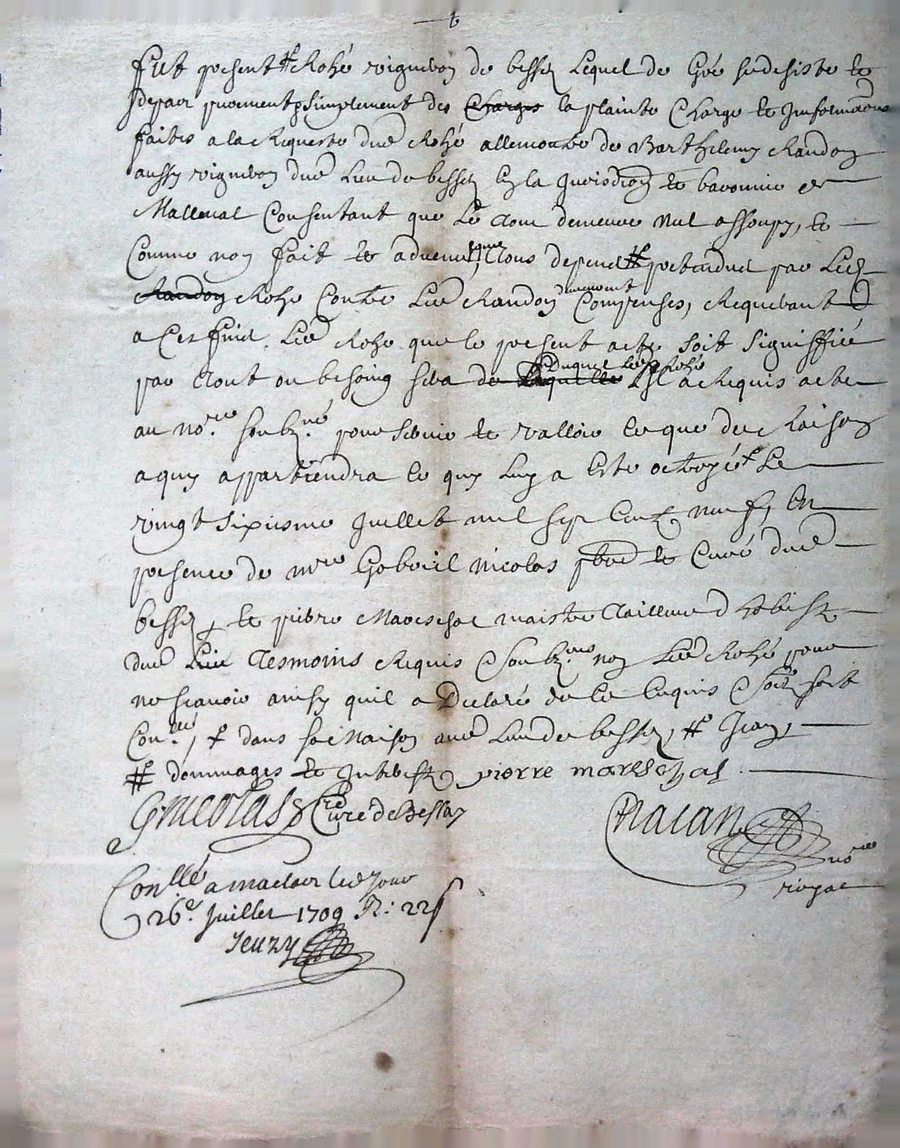 fut present Rohé vigneron de bessey Lequel de Gré se desiste et
depart purement & simplement des Charges la plainte Charge et Informaõns
faites a la Requeste dud Rohé allencontre de Barthelemy Randon
aussy vigneron dud Lieu de bessey en la Jurisdiõn et baronnie de
Malleval Consentant que Le tout demeure nul assoupy, et
Comme non fait et advenu, tous depend ## pretendus par Led
Randon Rohé Contre Led Randon demeurent Compensés, Requerant
a Ces fins Led Rohé que le present acte soit signiffié
par tout ou besoing sera de Laquelle Duquel led Rohé a Requis acte
au no.re soubz.né pour servir et valloir ce que de Raison
a quy appartiendra ce quy Luy a esté octroyé + Le
vingt sixiesme Juillet mil sept Centz neuf, En
presence de m.re Gabriel Nicolas pbre et Curé dud
bessey, et pierre Mareschal maistre Tailleur d'habistz
dud Lieu Tesmoins Requis & soubz.nés non Led Rohé pour
ne scavoir ainsy quil a Declaré de ce Enquis & soit
Con.llé, + dans sa Maison aud Lieu de bessey, ##
## dommages et Interestz pierre mareschal
GNicolas Curé de Bessay
Chatan no.re
royal
Con.llé a maclas led jour
26e Juillet 1709 R: 22s
Jeuzy